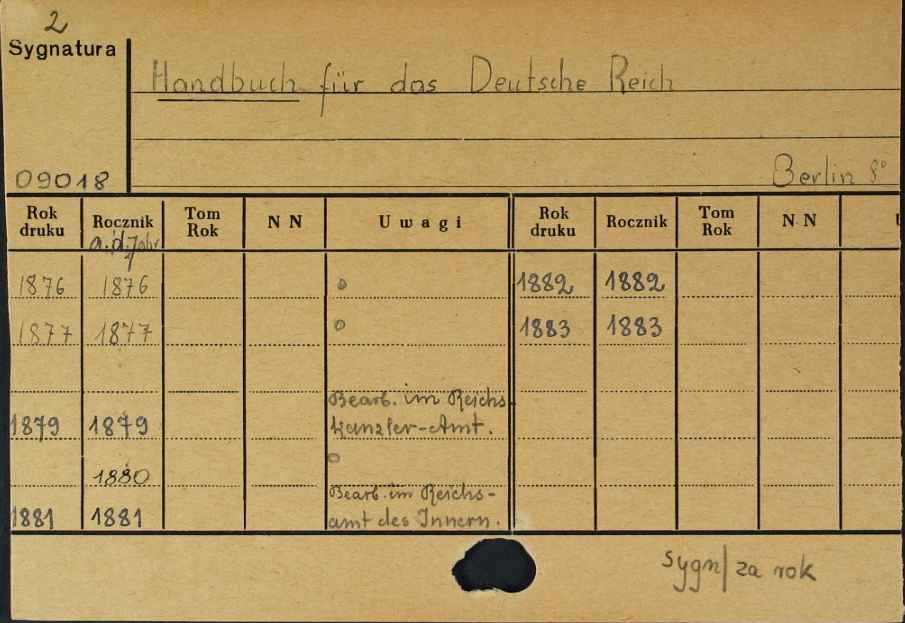 2
Sygnatura
Handbuch für das Deutsche Reich
09018
Berlin 8°
Rok druku Rocznik a.d. Jahr Tom Rok N N Uwagi Rok druku Rocznik Tom Rok N N U
1876 1876 " 1882 1882
1877 1877 " 1883 1883
Bearb. im Reichs-
1879 1879 kanzler-Amt.
1880 "
Bearb. im Reichs-
1881 1881 amt des Innern.
Sygn/ za rok